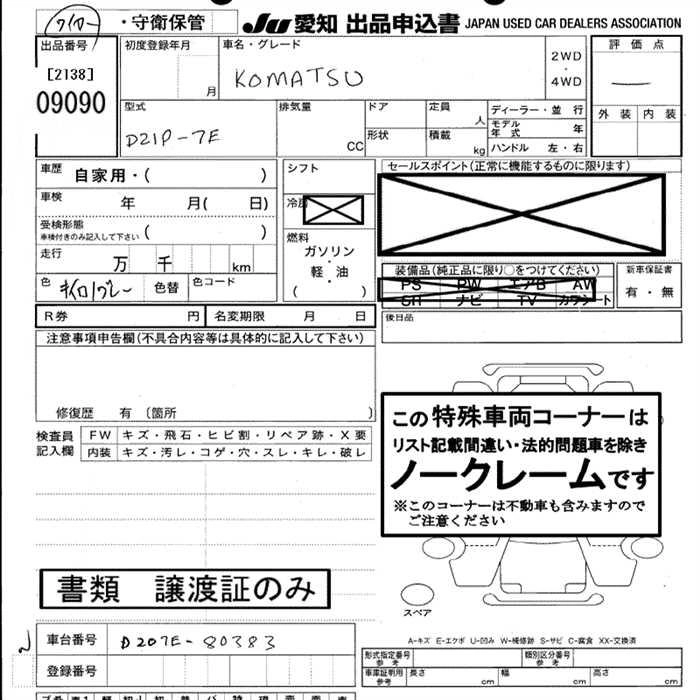 ・守衛保管 JU 愛知 出品申込書 JAPAN USED CAR DEALERS ASSOCIATION
出品番号 初度登録年月 車名・グレード 評価点
[2138] 月 KOMATSU 2WD・4WD
09090
型式 排気量 ドア 定員 ディーラー・並行 外装 内装
D21P-7E CC 形状 人 モデル年式 年
積載 kg ハンドル 左・右
車歴 自家用・( ) シフト セールスポイント(正常に機能するものに限ります)
車検 年 月( 日) 冷房
受検形態 ( )
車検付きのみ記入して下さい
燃料
走行 万 千 km ガソリン・軽・油 ( )
装備品(純正品に限り○をつけてください) 新車保証書
PS PW エアB AW 有・無
SR ナビ TV カワシート
色 キイロ/グレー 色替 色コード
後日品
R券 円 名変期限 月 日
注意事項申告欄(不具合内容等は具体的に記入して下さい)
修復歴 有 (箇所 )
検査員記入欄 FW キズ・飛石・ヒビ割・リペア跡・X要
内装 キズ・汚レ・コゲ・穴・スレ・キレ・破レ
この特殊車両コーナーは
リスト記載間違い・法的問題車を除き
ノークレームです
※このコーナーは不動車も含みますので
ご注意ください
書類 譲渡証のみ
スペア
A-キズ E-エクボ U-凹み W-補修跡 S-サビ C-腐食 XX-交換済
車台番号 D207E-80383
登録番号
形式指定番号 参考 類別区分番号 参考
車庫証明用 参考 長さ cm 幅 cm 高さ cm